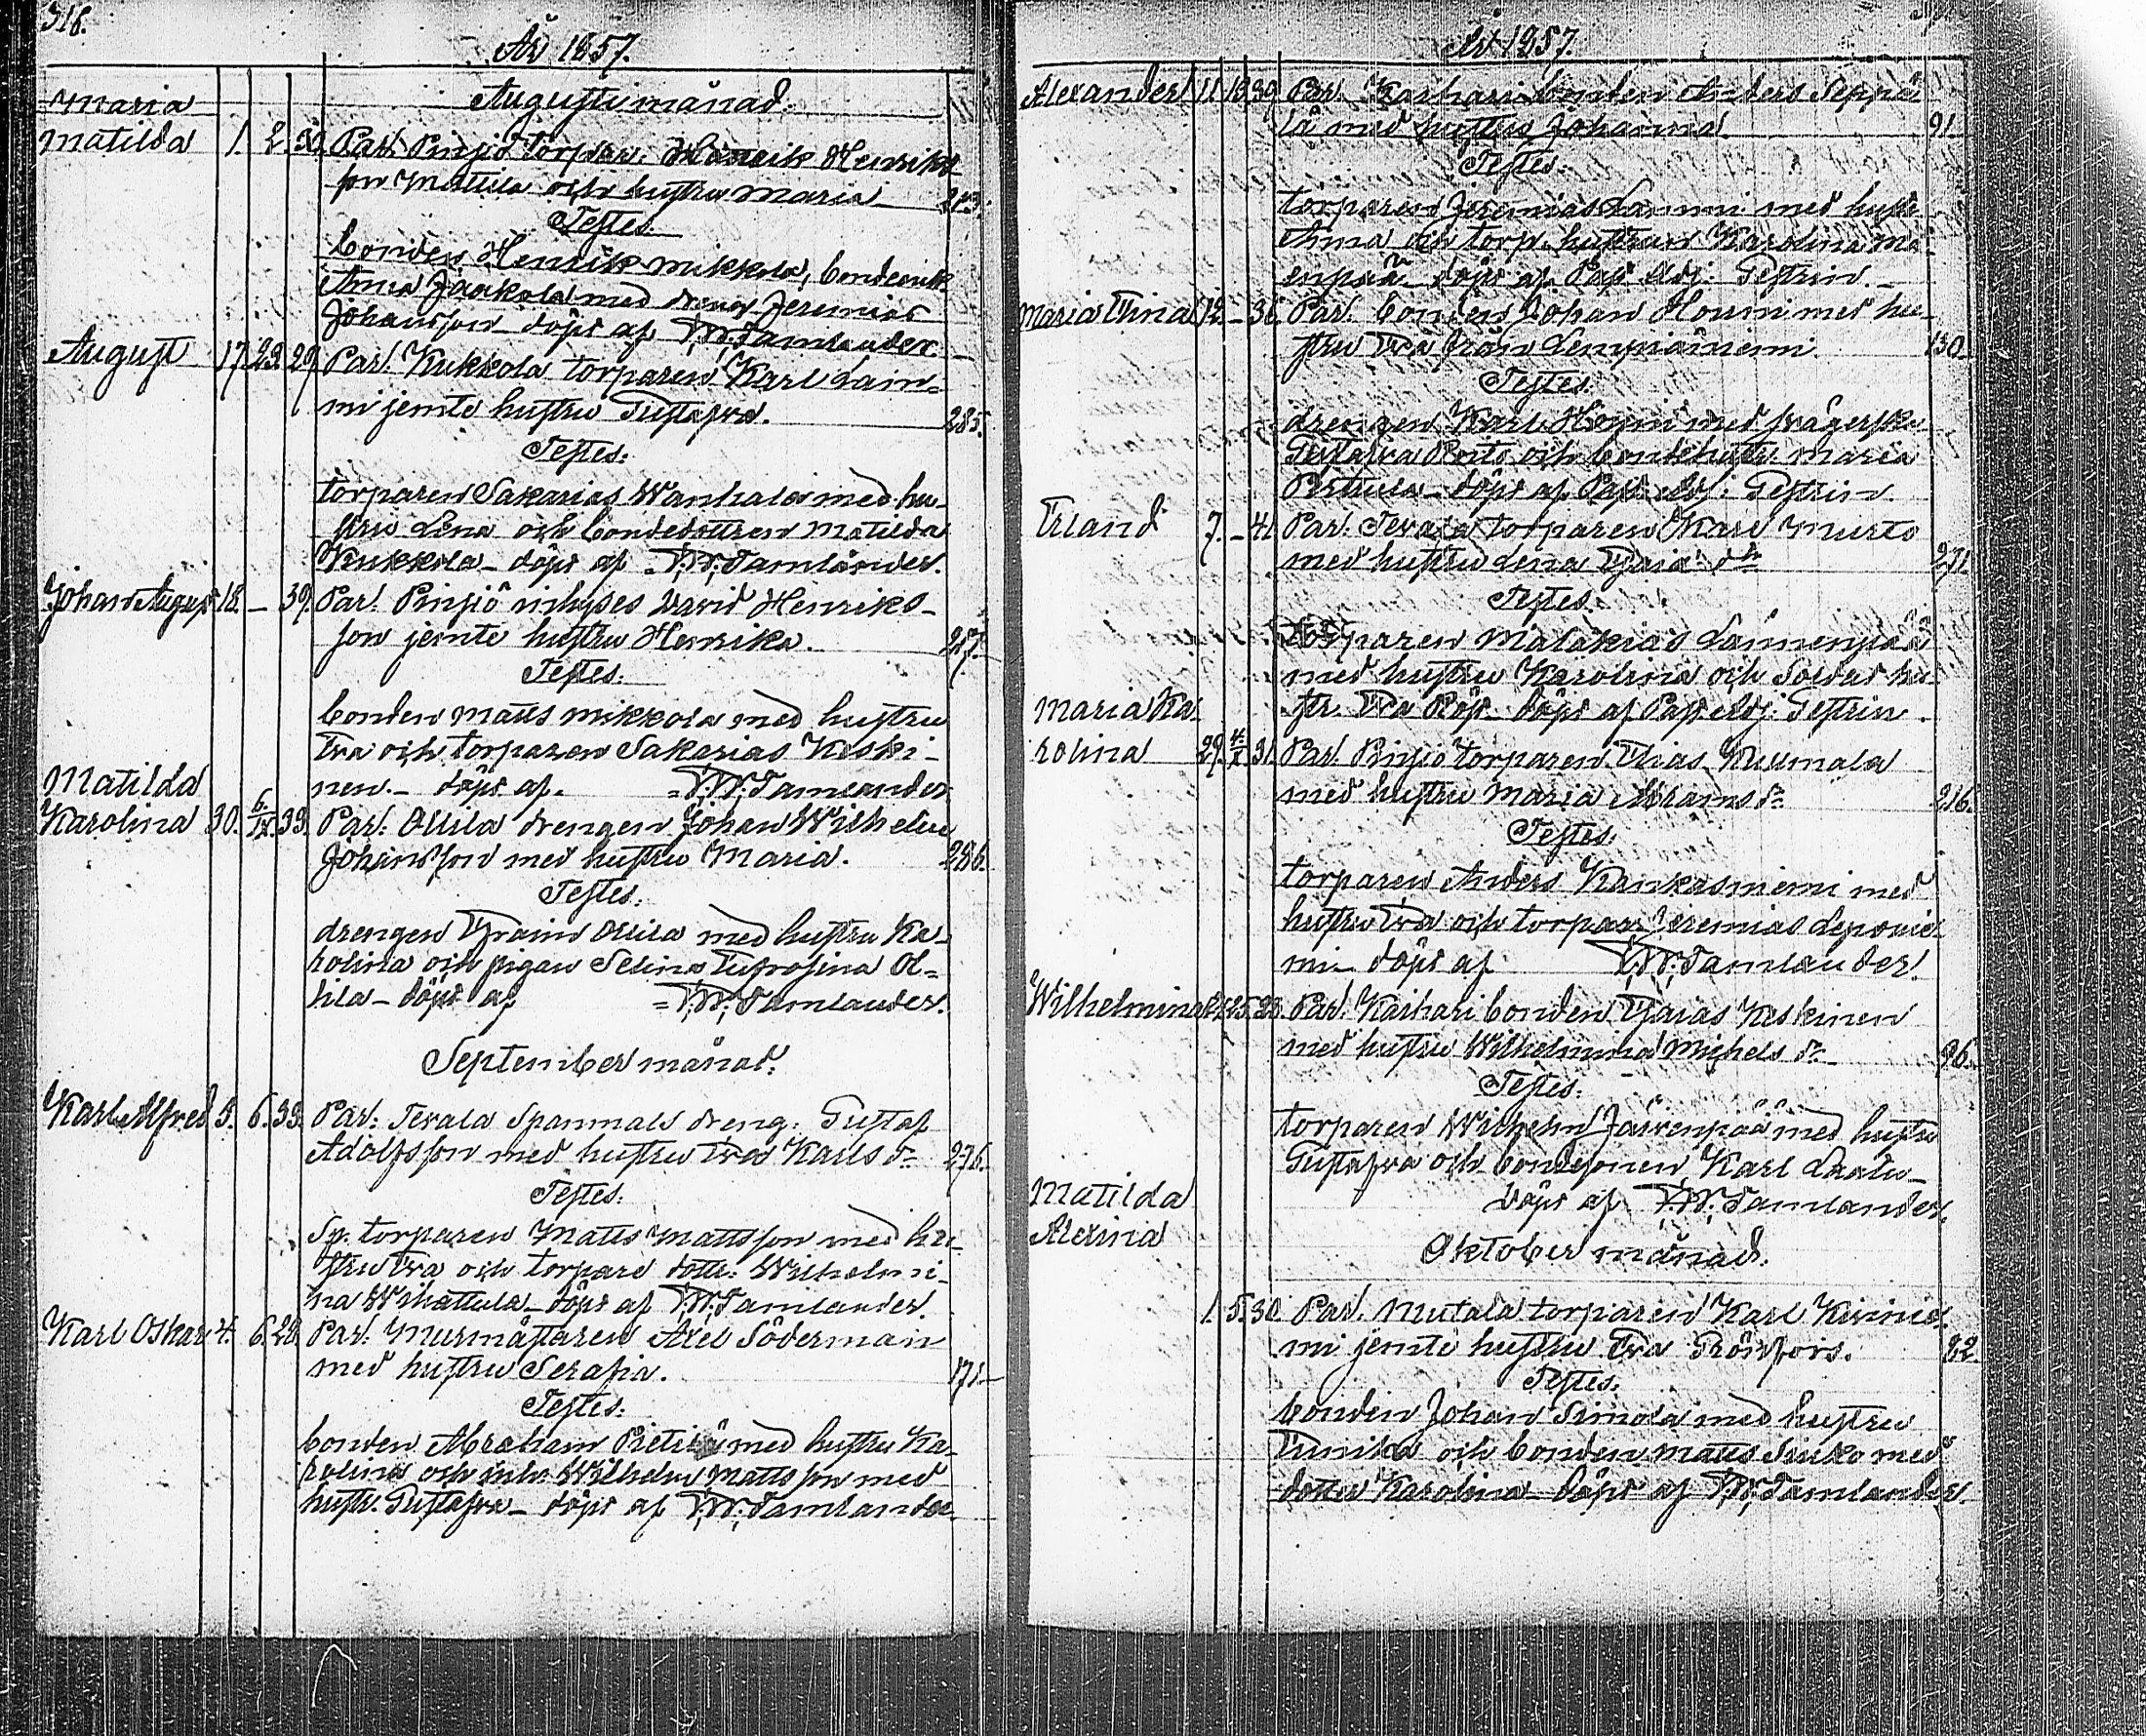 318.
År 1857.
Augusti månad.
Maria
Matilda 1. 2. 30. Par. Pinsiö torpar. Henrik Henriks
son Mattila och hustru Maria 243.
Testes.
bonden Henrik Mikkola, bondehust.
Anna Jaakola med dreng Jeremias
Johansson döpt af F:W:Tamlander.
August 17. 23. 29. Par. Kukkola torparen Karl Lam-
mi jemte hustru Gustafva. 285.
Testes:
torparen Sakarias Wanhala med hu-
stru Lena och bondedottren Matilda
Kukkola döpt af F:W:Tamlander.
Johan August 18. – 39. Par. Pinsiö inhyses David Henriks-
son jemte hustru Henrika. 257.
Testes:
bonden Matts Mikkola med hustru
Eva och torparen Sakarias Keski-
nen. döpt af F:W:Tamlander
Matilda
Karolina 30. 6/IX 33. Par. Ollila drengen Johan Wilhelm
Johansson med hustru Maria. 286.
Testes:
drengen Efraim Ollila med hustru Ka-
rolina och pigan Selina Eufrosina Ol-
lila döpt af F:W:Tamlander.
September månad.
Karl Alfred 5. 6. 33. Par. Tevala Spanmåls dreng. Gustaf
Adolfsson med hustru Eva Karls dr 276.
Testes:
Sp. torparen Matts Mattsson med hu-
stru Eva och torpare dottr. Wilhelmi-
na Wihattula döpt af F:W:Tamlander.
Karl Oskar 4. 6. 28. Par. Murmästaren Axel Söderman
med hustru Serafia. 171
Testes:
bonden Abraham Pietilä med hustru Ka-
rolina och inh. Wilhelm Mattsson med
hustr. Gustafva döpt af F:W:Tamlander
År 1857.
Alexander 11. 13. 39. Par. Karhari bonden Anders Seppä
lä med hustru Johanna. 91.
Testes:
torparen Jeremias Lammi med hustr.
Anna och torp. hustrun Karolina Mä
enpää döpt af Past. Adj: Gestrin.
Maria Elina 12. – 36. Par. bonden Johan Honni med hu-
stru Eva från Lempiäniemi 130.
Testes:
drengen Karl Honni med svägerska
Gustafva Perto och bondehustr. Maria
Pittula döpt af Past. Adj: Gestrin
Erland 7. – 41. Par. Tevala torparen Karl Murto
med hustru Lena Esaiæ dr 271.
Testes.
torparen Malakias Lamenpää
med hustru Karolina och Soldat hu-
str. Eva Röj döpt af Past. Adj: Gestrin.
Maria Ka
rolina 29. 4/X 31. Par. Pinsiö torparen Elias Kuumala
med hustru Maria Abrams dr 216.
Testes.
torparen Anders Kankasniemi med
hustru Eva och torpar. Jeremias Leponie
mi döpt af F:W:Tamlander.
Wilhelmina 24. 25. 23. Par. Karhari bonden Esaias Keskinen
med hustru Wilhelmina Michels dr 96.
Testes:
torparen Wilhelm Järvenpää med hustru
Gustafva och bondsonen Karl Laalu
döpt af F:W:Tamlander.
Oktober månad.
Matilda
Alexina 1. 5. 30. Par. Mutala torparen Karl Kivinie
mi jemte hustru Eva Grönfors. 22.
Testes:
bonden Johan Simola med hustru
Enrika och bonden Matts Sinko med
dotter Karolina döpt af F:W:Tamlander.